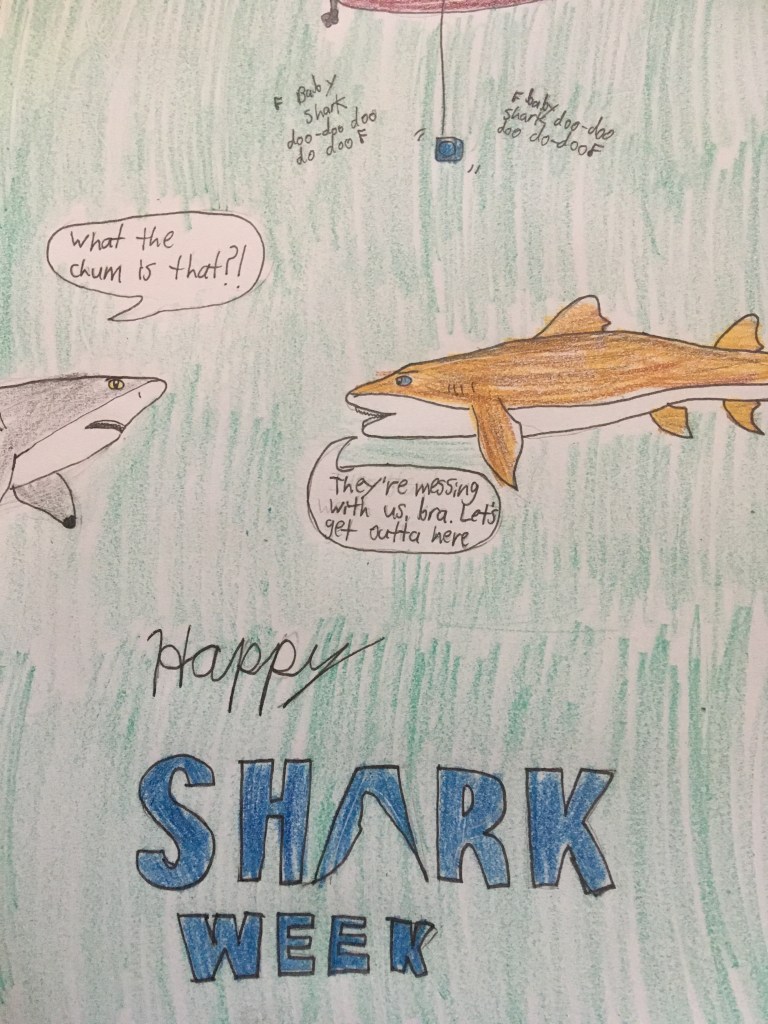 F Baby
shark
doo-doo doo
do doo F
F baby doo-doo
shark doo do-doo F
What the
chum is that?!
They're messing
with us, bra. Let's
get outta here
Happy
SHARK
WEEK